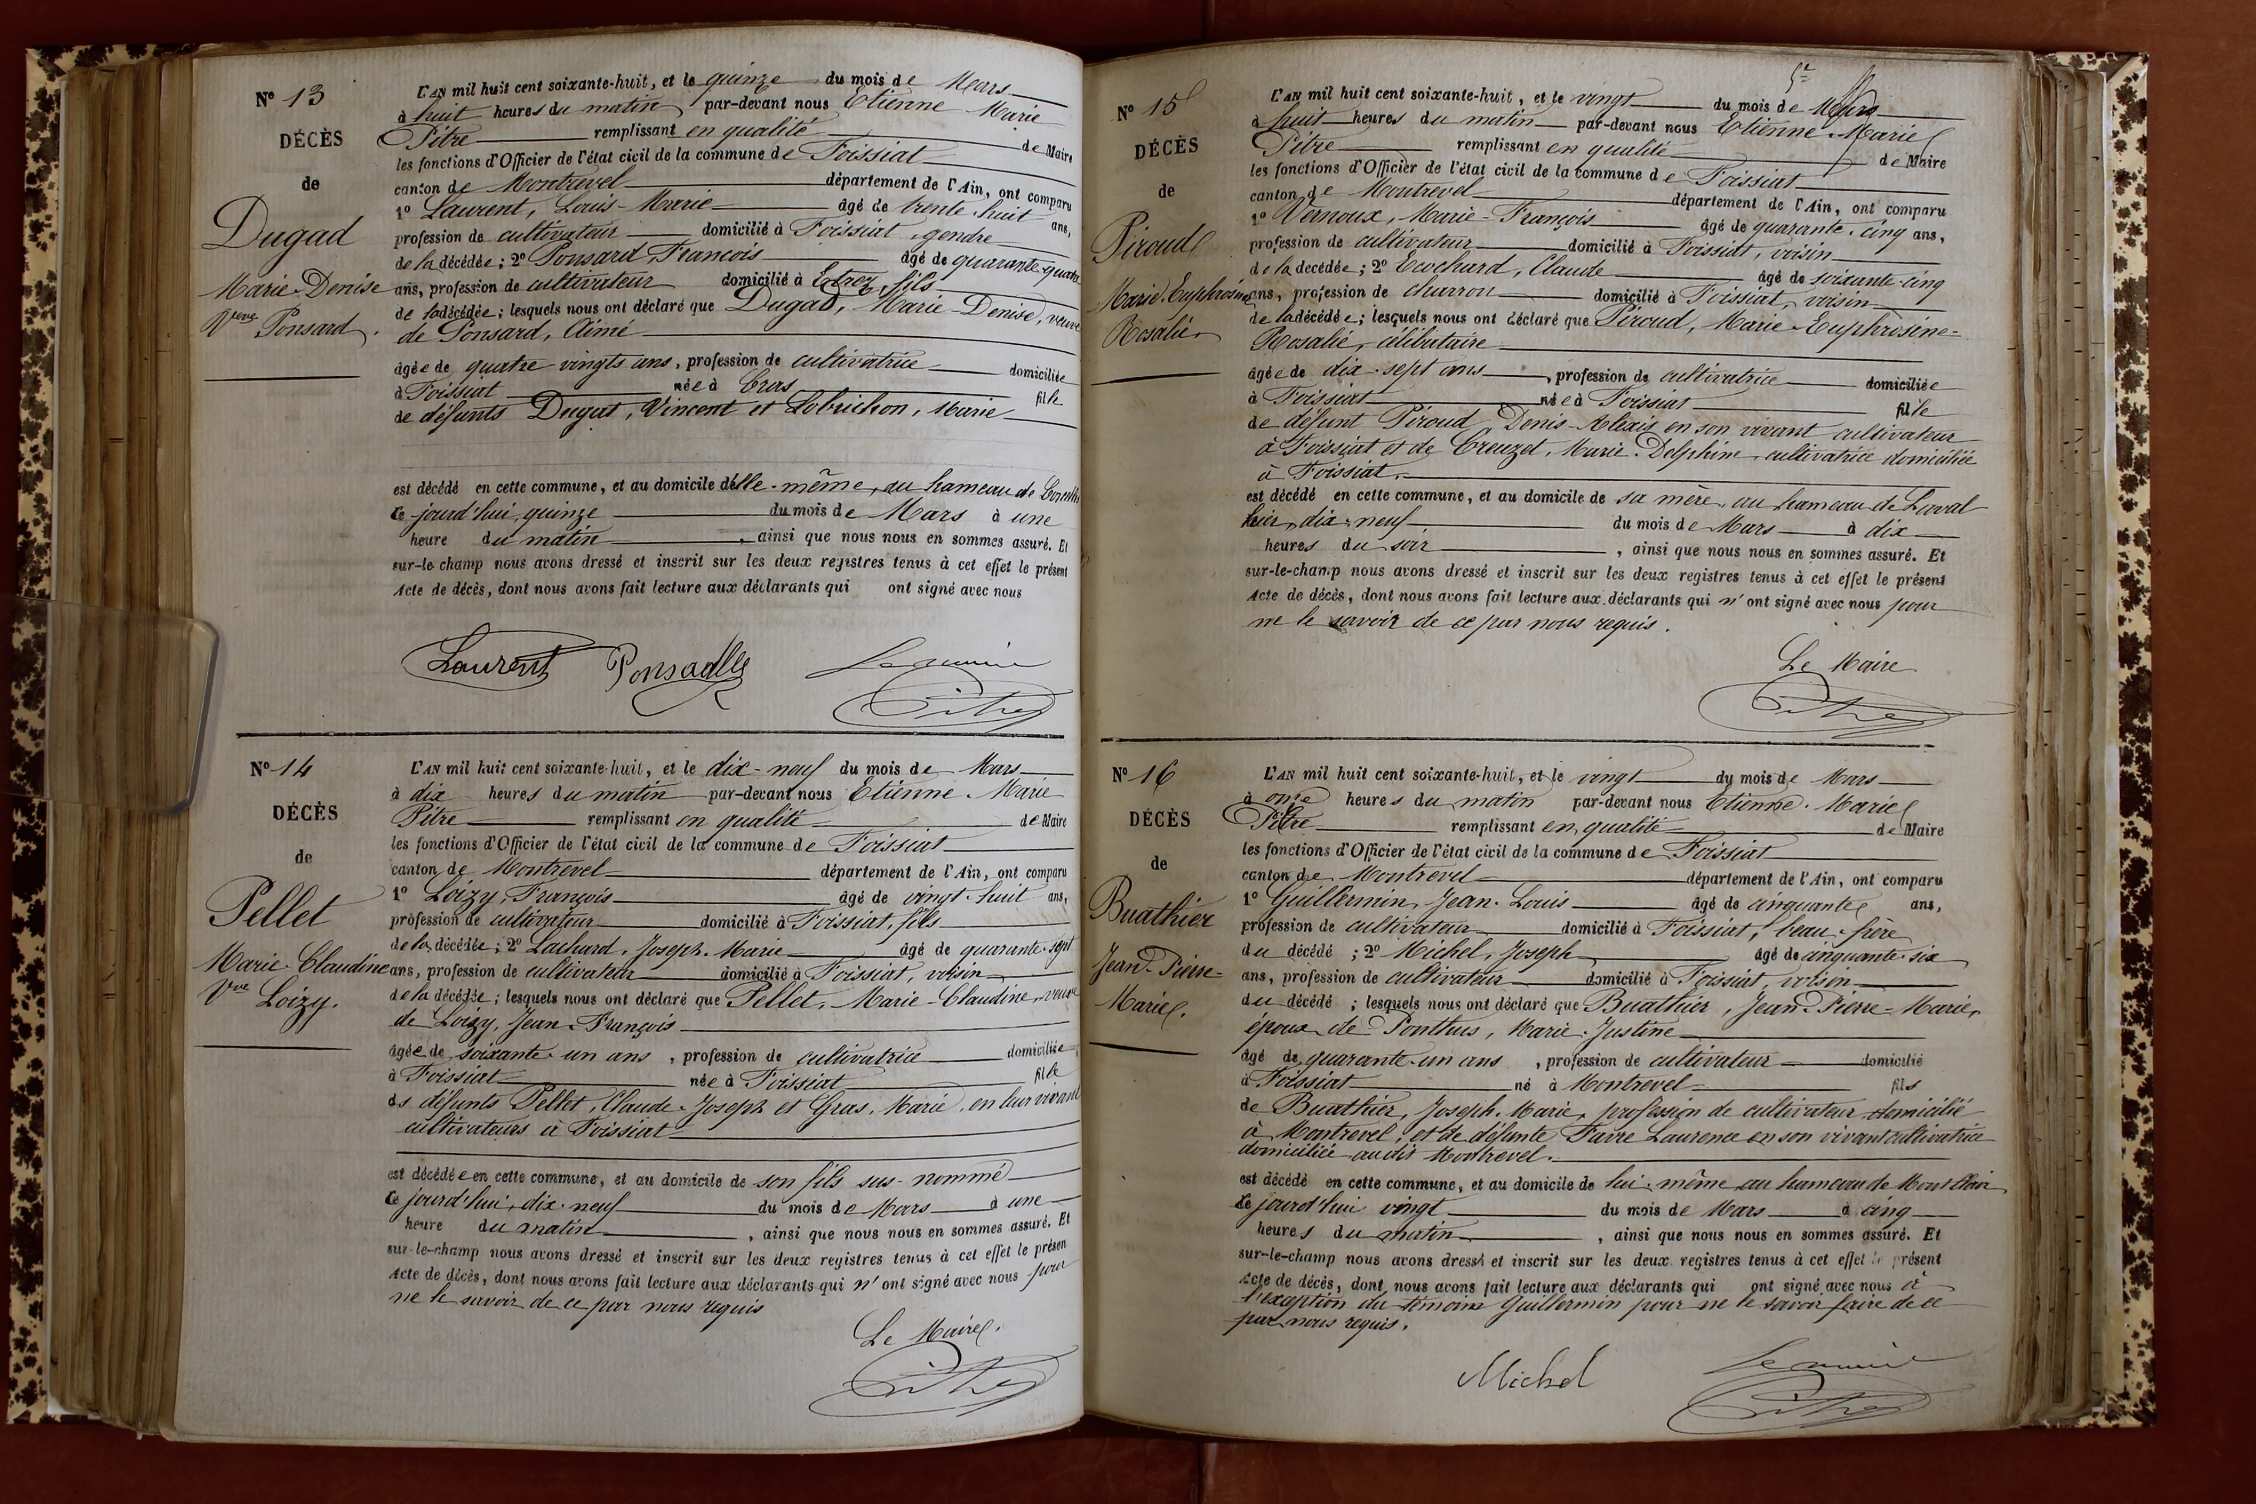 N° 13
DÉCÈS
de
Dugad
Marie-Denise
Vve Ponsard.
L'AN mil huit cent soixante-huit, et le quinze du mois de Mars
à huit heures du matin par-devant nous Etienne Marie
Pitre remplissant en qualité de Maire
les fonctions d'Officier de l'état civil de la commune de Foissiat
canton de Montrevel département de l'Ain, ont comparu
1° Laurent, Louis-Marie âgé de trente-huit ans,
profession de cultivateur domicilié à Foissiat, gendre
de la décédée; 2° Ponsard, François âgé de quarante-quatre
ans, profession de cultivateur domicilié à Etrez, fils
de la décédée; lesquels nous ont déclaré que Dugad, Marie-Denise, veuve
de Ponsard, Aimé
âgée de quatre vingts ans, profession de cultivatrice domiciliée
à Foissiat née à Cras fille
de défunts Dugat, Vincent et Lobrichon, Marie
est décédé en cette commune, et au domicile d'elle-même, au hameau de
Ce jourd'hui, quinze du mois de Mars à une
heure du matin, ainsi que nous nous en sommes assuré. Et
sur-le-champ nous avons dressé et inscrit sur les deux registres tenus à cet effet le présent
Acte de décès, dont nous avons fait lecture aux déclarants qui ont signé avec nous
Laurent Ponsard Le maire
Pitre
N° 14
DÉCÈS
de
Pellet
Marie-Claudine
Vve Loizy.
L'AN mil huit cent soixante-huit, et le dix-neuf du mois de Mars
à dix heures du matin par-devant nous Etienne-Marie
Pitre remplissant en qualité de Maire
les fonctions d'Officier de l'état civil de la commune de Foissiat
canton de Montrevel département de l'Ain, ont comparu
1° Loizy, François âgé de vingt-huit ans,
profession de cultivateur domicilié à Foissiat, fils
de la décédée; 2° Lachard, Joseph-Marie âgé de quarante-sept
ans, profession de cultivateur domicilié à Foissiat, voisin
de la décédée; lesquels nous ont déclaré que Pellet, Marie-Claudine, veuve
de Loizy, Jean-François
âgée de soixante-un ans, profession de cultivatrice domiciliée
à Foissiat née à Foissiat fille
de défunts Pellet, Claude-Joseph et Gras, Marie, en leur vivant
cultivateurs à Foissiat
est décédée en cette commune, et au domicile de son fils sus-nommé
Ce jourd'hui, dix-neuf du mois de Mars à une
heure du matin, ainsi que nous nous en sommes assuré. Et
sur-le-champ nous avons dressé et inscrit sur les deux registres tenus à cet effet le présen
Acte de décès, dont nous avons fait lecture aux déclarants qui n'ont signé avec nous pour
ne le savoir de ce par nous requis
Le Maire.
Pitre
N° 15
DÉCÈS
de
Piroud
Marie, Euphrosine
Rosalie
L'AN mil huit cent soixante-huit, et le vingt du mois de Mars
à huit heures du matin par-devant nous Etienne-Marie
Pitre remplissant en qualité de Maire
les fonctions d'Officier de l'état civil de la commune de Foissiat
canton de Montrevel département de l'Ain, ont comparu
1° Vernoux, Marie-François âgé de quarante-cinq ans,
profession de cultivateur domicilié à Foissiat, voisin
de la décédée; 2° Ecochard, Claude âgé de soixante-cinq
ans, profession de charron domicilié à Foissiat, voisin
de la décédée; lesquels nous ont déclaré que Piroud, Marie-Euphrosine-
Rosalie, célibataire
âgée de dix-sept ans, profession de cultivatrice domiciliée
à Foissiat née à Foissiat fille
de défunt Piroud Denis-Alexis en son vivant cultivateur
à Foissiat et de Creuzet, Marie-Delphine, cultivatrice domiciliée
à Foissiat.
est décédé en cette commune, et au domicile de sa mère, au hameau de Laval
hier, dix-neuf du mois de Mars à dix
heures du soir, ainsi que nous nous en sommes assuré. Et
sur-le-champ nous avons dressé et inscrit sur les deux registres tenus à cet effet le présent
Acte de décès, dont nous avons fait lecture aux déclarants qui n'ont signé avec nous pour
ne le savoir de ce par nous requis.
Le Maire
Pitre
N° 16
DÉCÈS
de
Buathier
Jean-Pierre-
Marie.
L'AN mil huit cent soixante-huit, et le vingt du mois de Mars
à onze heures du matin par-devant nous Etienne-Marie
Pitre remplissant en qualité de Maire
les fonctions d'Officier de l'état civil de la commune de Foissiat
canton de Montrevel département de l'Ain, ont comparu
1° Guillermin, Jean-Louis âgé de cinquante ans,
profession de cultivateur domicilié à Foissiat, beau-frère
du décédé; 2° Michel, Joseph âgé de cinquante-six
ans, profession de cultivateur domicilié à Foissiat, voisin
du décédé; lesquels nous ont déclaré que Buathier, Jean-Pierre-Marie,
époux de Ponthus, Marie-Justine
âgé de quarante-un ans, profession de cultivateur domicilié
à Foissiat né à Montrevel fils
de Buathier, Joseph-Marie, profession de cultivateur domicilié
à Montrevel, et de défunte Favre Laurence en son vivant cultivatrice
domiciliée audit Montrevel.
est décédé en cette commune, et au domicile de lui-même au hameau de
Ce jourd'hui vingt du mois de Mars à cinq
heures du matin, ainsi que nous nous en sommes assuré. Et
sur-le-champ nous avons dressé et inscrit sur les deux registres tenus à cet effet le présent
Acte de décès, dont nous avons fait lecture aux déclarants qui ont signé avec nous à
l'exception du témoin Guillermin pour ne le savoir faire de ce
par nous requis.
Michel Le maire
Pitre